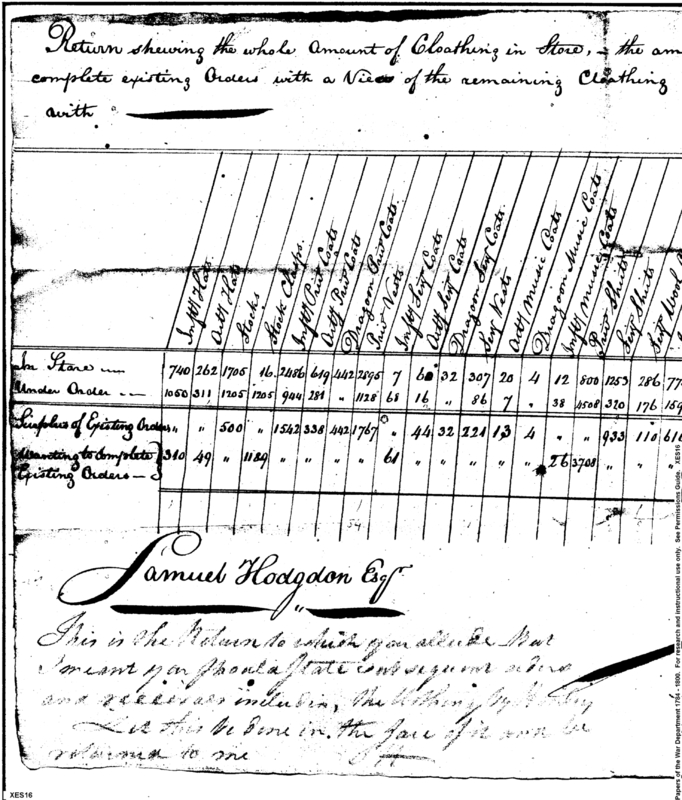 Return shewing the whole Amount of Cloathing in Store, - the am
complete existing Orders with a View of the remaining Cloathing
with
Inftʸ Hats.
Artʸ Hats
Stocks
Stock Clasps.
Inftʸ Privᵗ Coats
Artʸ Privᵗ Coats
Dragoon Privᵗ Coats.
Privᵗ Vests
Inftʸ Serjᵗ Coats
Artʸ Serjᵗ Coats
Dragoon Serjᵗ Coats.
Serjᵗ Vests
Artʸ Music Coats
Dragoon Music Coats.
Inftʸ Music Coats
Privᵗ Shirts
Serjᵗ Shirts
Serjᵗ Wool
In Store 740 262 1705 16 2486 619 442 2895 7 60 32 307 20 4 12 800 1253 286 77
Under Order 1050 311 1205 1205 944 281 " 1128 68 16 " 86 7 " 38 4508 320 176 159
Surplus of Existing Orders " " 500 " 1542 338 442 1767 " 44 32 221 13 4 " " 933 110 61
Wanting to complete 310 49 " 1189 " " " " 61 " " " " " 26 3708 " " "
Existing Orders
Samuel Hodgdon Esqʳ
This is the Return to which you allude But
I meant you should state
and including the Clothing
Let this be done in the face of it and be
returned to me
XES16
Papers of the War Department 1784 - 1800. For research and instructional use only. See Permissions Guide. XES16